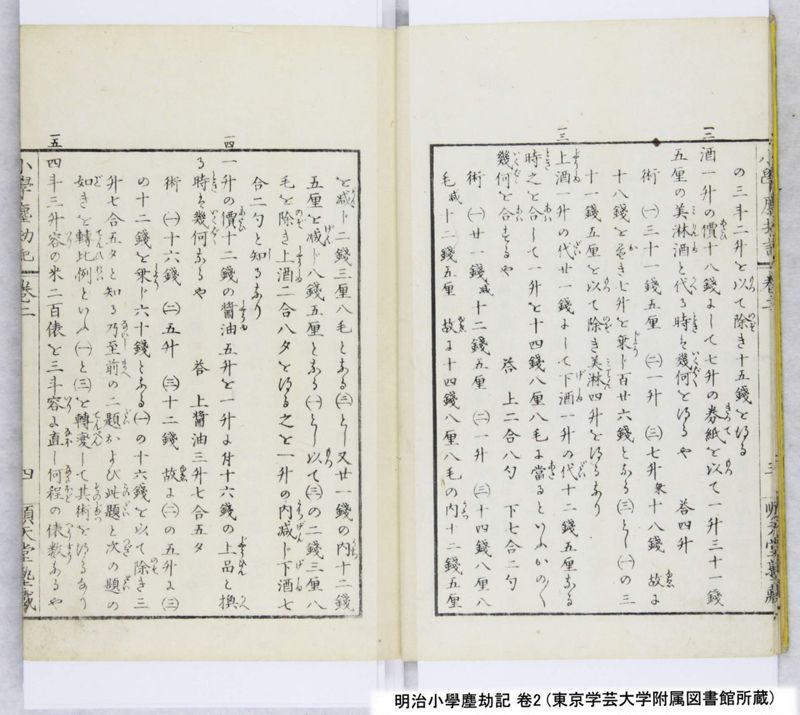 小學塵劫記 卷二 三 順天堂塾藏
の三斗二升を以て除き十五錢を得る
一二 酒一升の價十八錢よして七升の券紙を以て一升三十一錢
五厘の美淋酒と代る時を幾何を得るや 答四升
術 ㈠三十一錢五厘 ㈡一升 ㈢七升 乗十八錢 故よ
十八錢を㐧き七升を乗ト百廿六錢とある㈢とし㈠の三
十一錢五厘を以て除き美淋四升を得るあり
一三 上酒一升の代廿一錢よして下酒一升の代十二錢五厘ある
時之と合して一升を十四錢八厘八毛よ當るといふかの〱
幾何を合するや 答 上二合八勺 下七合二勺
術 ㈠廿一錢 減十二錢五厘 ㈡一升 ㈢十四錢八厘八
毛 減十二錢五厘 故よ十四錢八厘八毛の内十二錢五厘
を減ト二錢三厘八毛とある㈢とし又廿一錢の内十二錢
五厘を減ト八錢五厘とある㈠とし以て㈢の二錢三厘八
毛を除き上酒二合八夕を得る之を一升の内減ト下酒七
合二勺と知るあり
一四 一升の價十二錢の醬油五升を一升よ付十六錢の上品と換
る時を幾何あるや 答 上醬油三升七合五夕
術 ㈠十六錢 ㈡五升 ㈢十二錢 故よ㈡の五升よ㈢
の十二錢を乗ト六十錢とある㈠の十六錢を以て除き三
升七合五夕と知る乃至前の二題および此題と次の題の
如きを轉比例といふ㈠と㈢を轉変して其術を得るあり
一五 四斗三升容の米二百俵を三斗容よ直し何程の俵数あるや
小學塵劫記 卷二 四 順天堂塾藏
明治小學塵劫記 巻2 (東京学芸大学附属図書館所蔵)